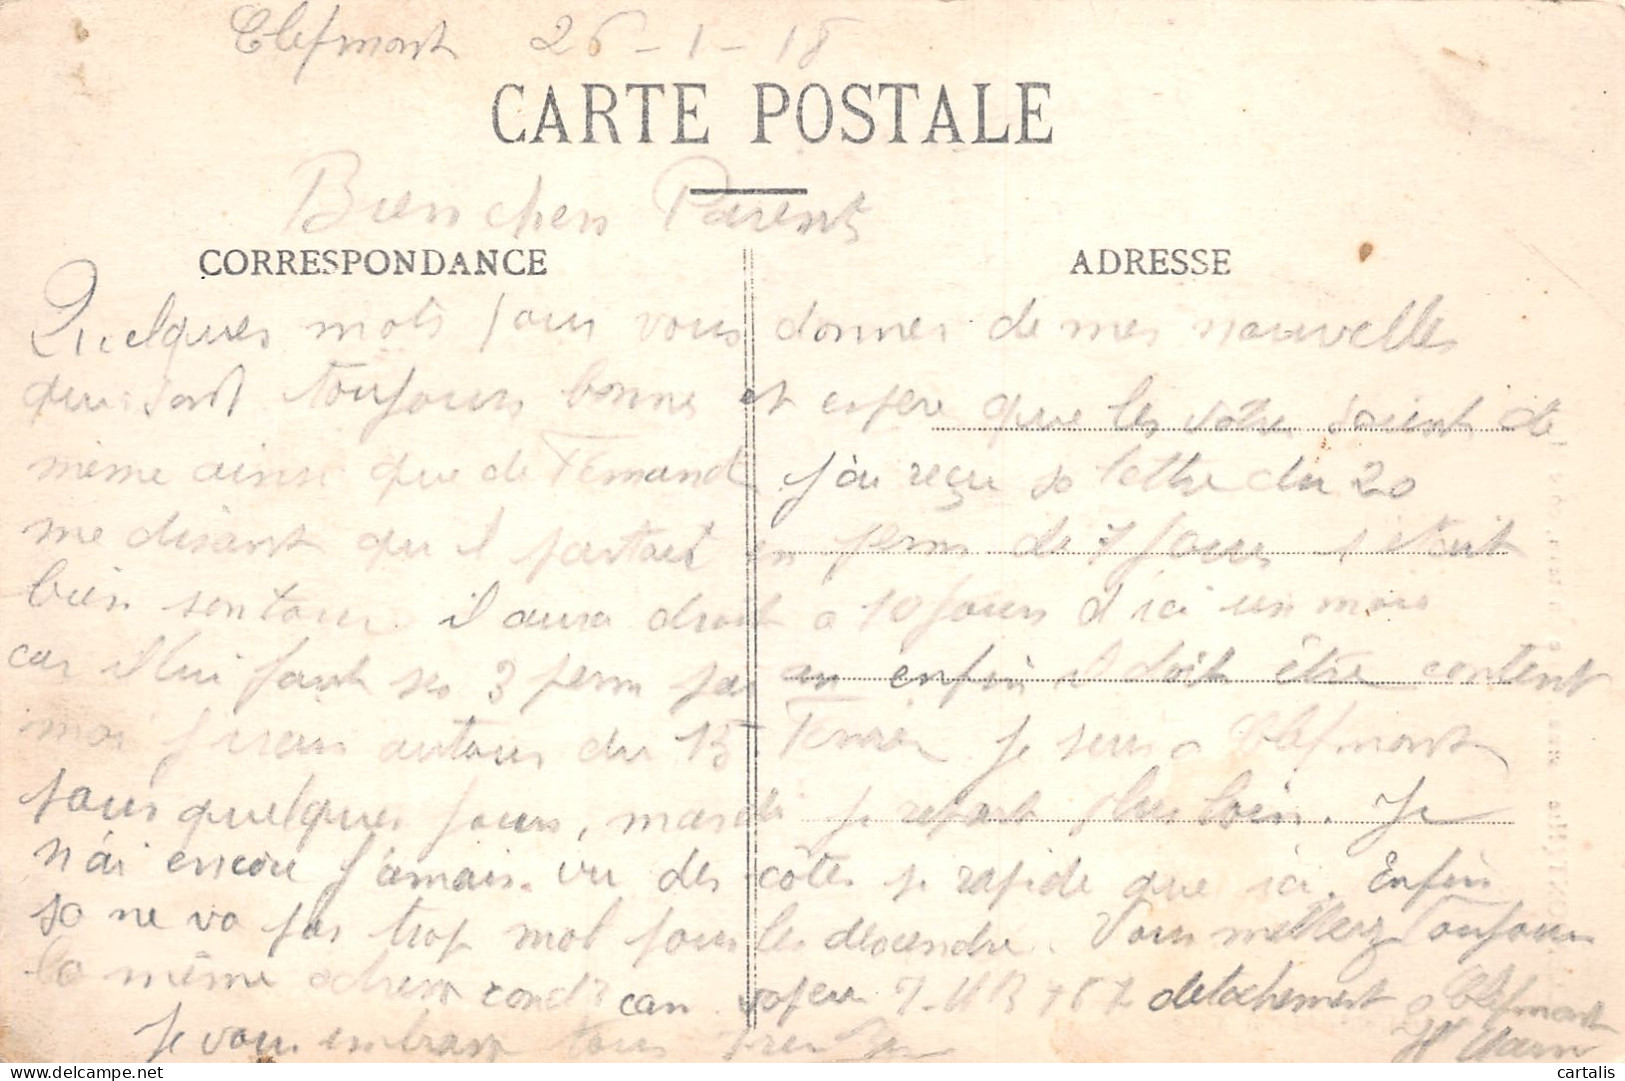 Clefmont 26-1-18
CARTE POSTALE
Bien chers Parents
CORRESPONDANCE
ADRESSE
Quelques mots pour vous donner de mes nouvelles
qui sont toujours bonnes et espère que les votre soient de
même ainsi que de Fernand j'ai reçu sa lettre du 20
me disant qu il partait en perm de 7 jours s etait
bien son tour il aura droit a 10 jours d ici un mois
car il lui faut ses 3 perm par an enfin il doit être content
moi j irais autour du 15 Fevrier Je suis a Clefmont
pour quelques jours, mardi je repart plus loin. Je
n'ai encore jamais vu des côtes si rapide que ici. Enfin
sa ne va pas trop mal pour les descendre. Vous mettez Toujours
la même adresse cond can 7 détachement a Clefmont
Je vous embrasse tous
Hte Marne
cartalis
Delcampe.net